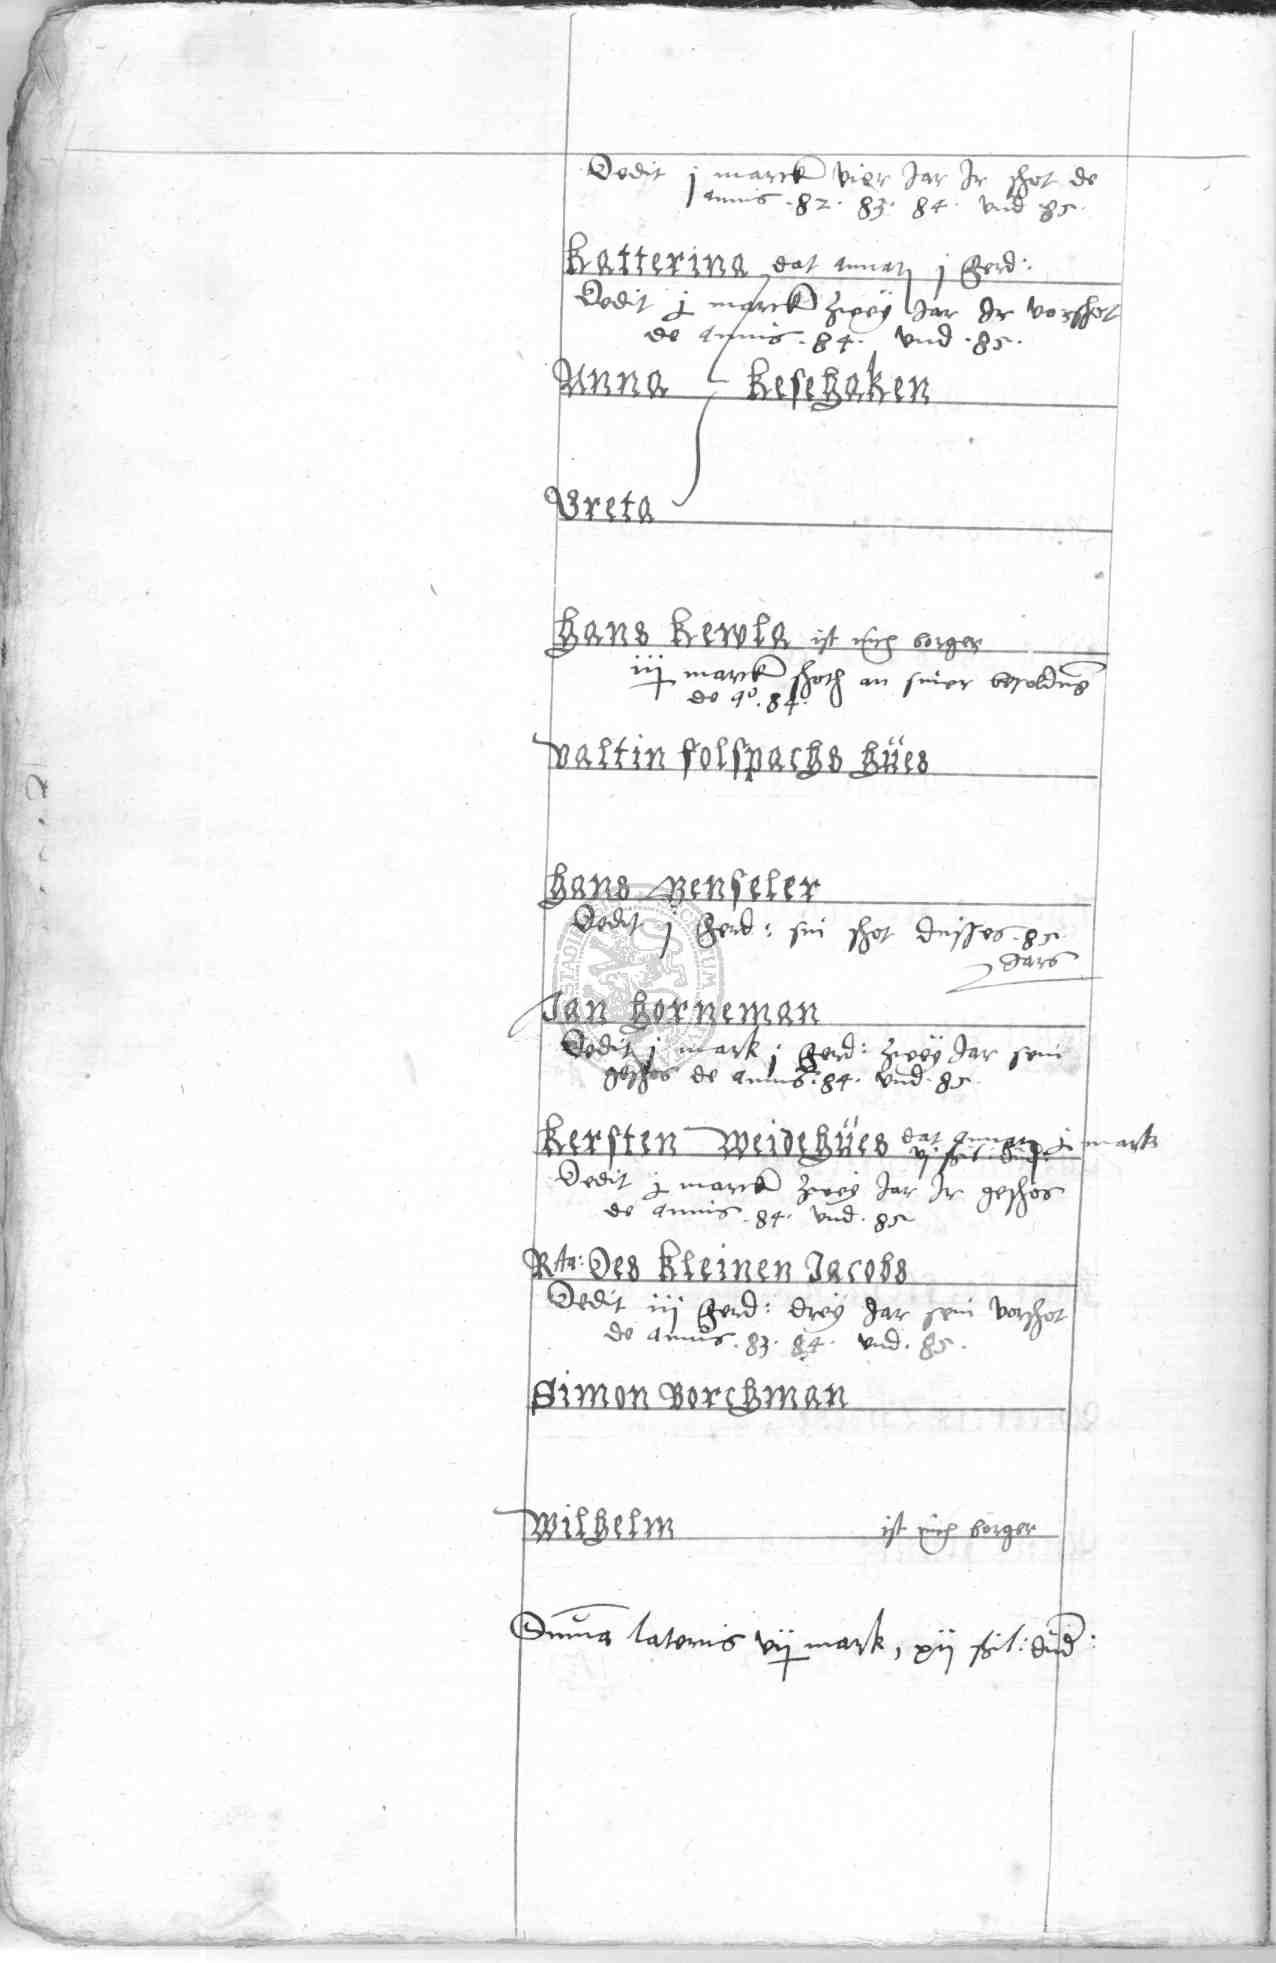 Dedit j marck vier Jar Jr schot de
annis .82. 83. 84. vnd 85.
Katterina dat annat j ferd:
Dedit j marck zweÿ Jar Jr vorschot
de annis .84. vnd .85.
Anna Kesehaken
Greta
Hans Kewla ist nich borger
iij marck schoth an siner besoldung
de ao. 84.
Valtin Folspachs Hües
Hans Benseler
Dedit j ferd: sin schot disses .85.
Jars
Jan Horneman
Dedit j mark j ferd: zweÿ Jar sein
geschos de annis .84. vnd .85.
Kersten Weidehües dat annat j mark
vj sκil: lüb:
Dedit j marck zweÿ Jar Jr geschos
de annis .84. vnd .85
Rta: Des Kleinen Jacobs
Dedit iij ferd: dreÿ Jar sein vorschot
de annis .83. 84. vnd .85.
Simon Borchman
Wilhelm ist nich borger
Summa lateris vij mark, xij sκil: lüb: